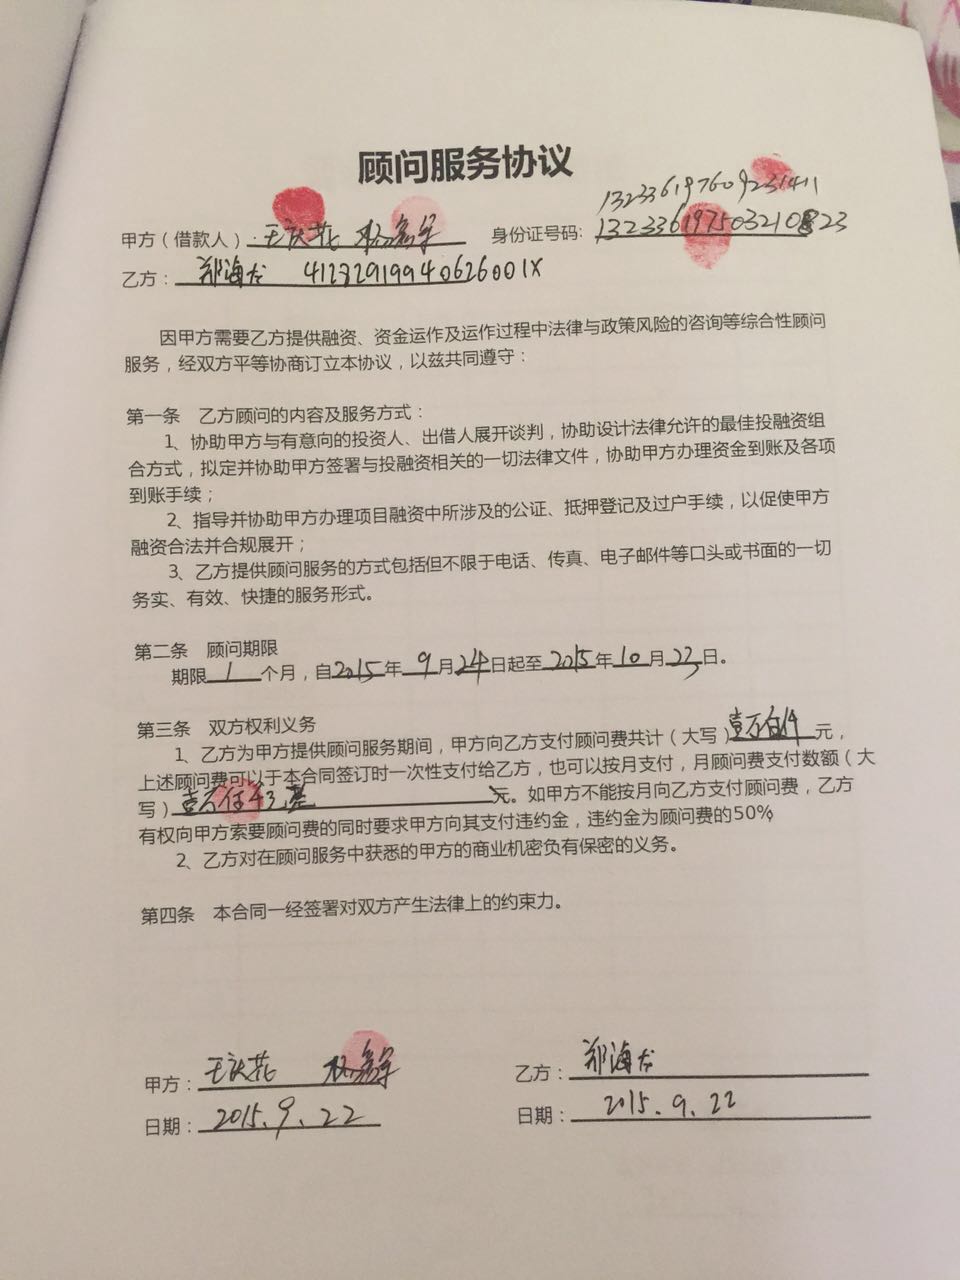 顾问服务协议
132336197609231411
甲方（借款人）： 王 身份证号码：132336197503210823
乙方：郑海龙 41272919940626001X
因甲方需要乙方提供融资、资金运作及运作过程中法律与政策风险的咨询等综合性顾问
服务，经双方平等协商订立本协议，以兹共同遵守：
第一条 乙方顾问的内容及服务方式：
1、协助甲方与有意向的投资人、出借人展开谈判，协助设计法律允许的最佳投融资组
合方式，拟定并协助甲方签署与投融资相关的一切法律文件，协助甲方办理资金到账及各项
到账手续；
2、指导并协助甲方办理项目融资中所涉及的公证、抵押登记及过户手续，以促使甲方
融资合法并合规展开；
3、乙方提供顾问服务的方式包括但不限于电话、传真、电子邮件等口头或书面的一切
务实、有效、快捷的服务形式。
第二条 顾问期限
期限1个月，自2015年9月24日起至2015年10月23日。
第三条 双方权利义务
1、乙方为甲方提供顾问服务期间，甲方向乙方支付顾问费共计（大写）壹万伍仟元，
上述顾问费可以于本合同签订时一次性支付给乙方，也可以按月支付，月顾问费支付数额（大
写）壹万伍仟元整元。如甲方不能按月向乙方支付顾问费，乙方
有权向甲方索要顾问费的同时要求甲方向其支付违约金，违约金为顾问费的50%
2、乙方对在顾问服务中获悉的甲方的商业机密负有保密的义务。
第四条 本合同一经签署对双方产生法律上的约束力。
甲方：王 乙方：郑海龙
日期：2015.9.22 日期：2015.9.22